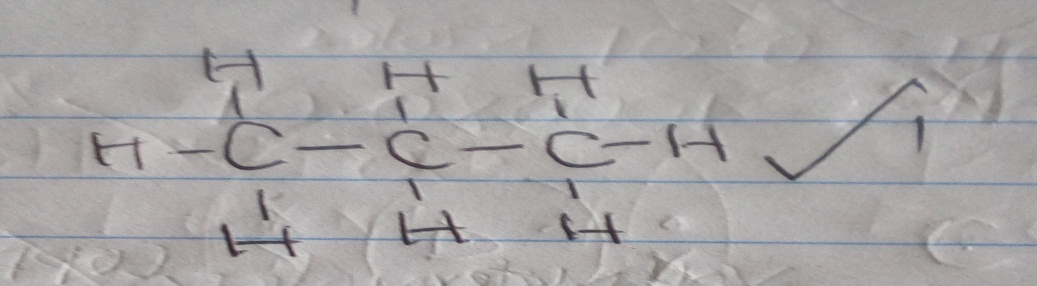 H H H
H - C - C - C - H ✓ 1
H H H